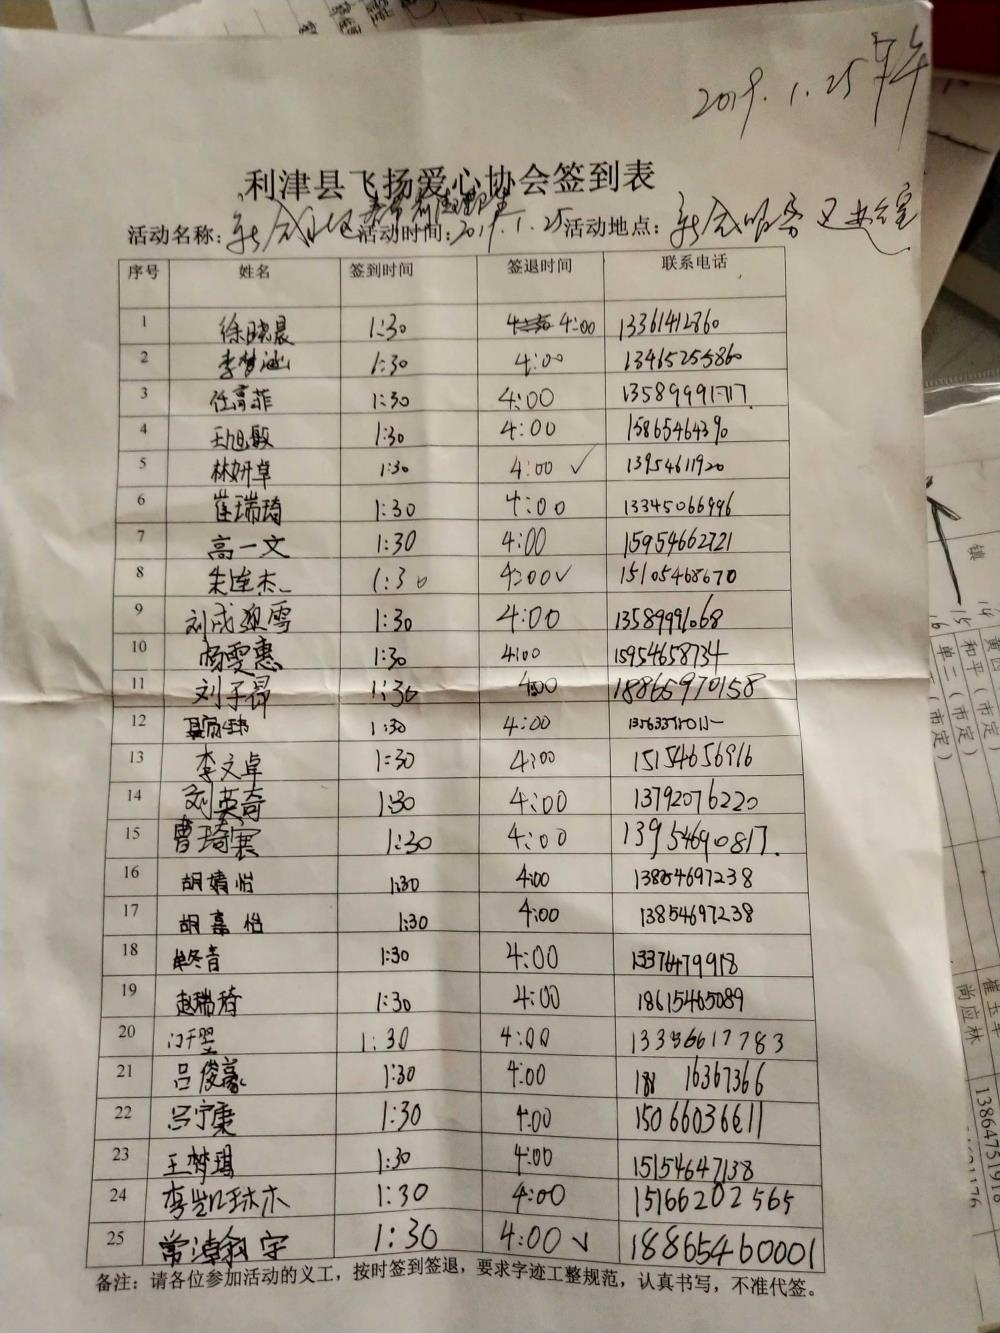 2019.1.25 下午
利津县飞扬爱心协会签到表
活动名称: 活动时间:2019.1.25 活动地点:
序号 姓名 签到时间 签退时间 联系电话
1 徐晓晨 1:30 4:00 13361412860
2 李梦涵 1:30 4:00 13465255860
3 任高菲 1:30 4:00 13589991717
4 1:30 4:00 15865464390
5 林妍卓 1:30 4:00 ✓ 13954611920
6 崔瑞琦 1:30 4:00 13345066996
7 高一文 1:30 4:00 15954662721
8 朱连杰 1:30 4:00 ✓ 15105468670
9 1:30 4:00 13589991068
10 杨雯惠 1:30 4:00 15954658734
11 刘子昂 1:30 4:00 18865970158
12 1:30 4:00
13 李文卓 1:30 4:00 15154656916
14 刘英奇 1:30 4:00 13792076220
15 1:30 4:00 13954690817
16 胡婧怡 1:30 4:00 13854697238
17 胡嘉怡 1:30 4:00 13854697238
18 1:30 4:00 13376479918
19 赵瑞琦 1:30 4:00 18615465089
20 1:30 4:00 13356617783
21 吕俊豪 1:30 4:00 16367366
22 吕宁康 1:30 4:00 15066036611
23 王梦琪 1:30 4:00 15154647138
24 1:30 4:00 15166202565
25 1:30 4:00 ✓ 18865460001
备注：请各位参加活动的义工，按时签到签退，要求字迹工整规范，认真书写，不准代签。
镇
和平（市定）
单三（市定）
尚应林